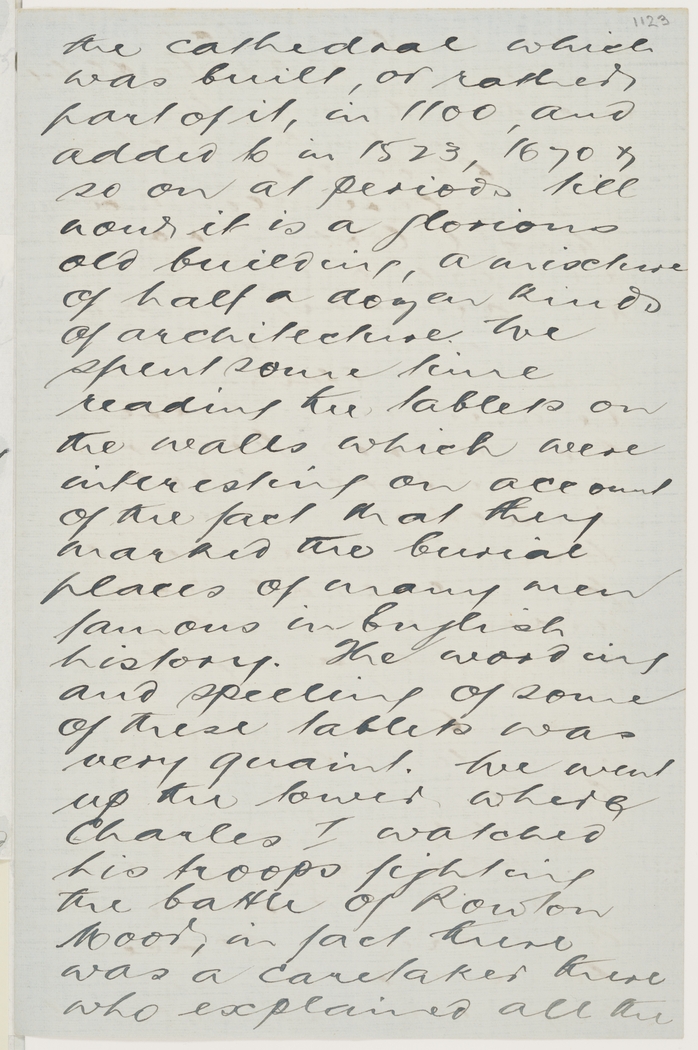 1123
the cathedral which
was built, or rather
part of it, in 1100, and
added to in 1523, 1670 &
so on at periods till
now it is a glorious
old building, a mixture
of half a dozen kinds
of architecture. We
spent some time
reading the tablets on
the walls which were
interesting on account
of the fact that they
marked the burial
places of many men
famous in English
history. The wording
and spelling of some
of these tablets was
very quaint. We went
up the tower where
Charles I watched
his troops fighting
the battle of Rowton
Moor, in fact there
was a caretaker there
who explained all the